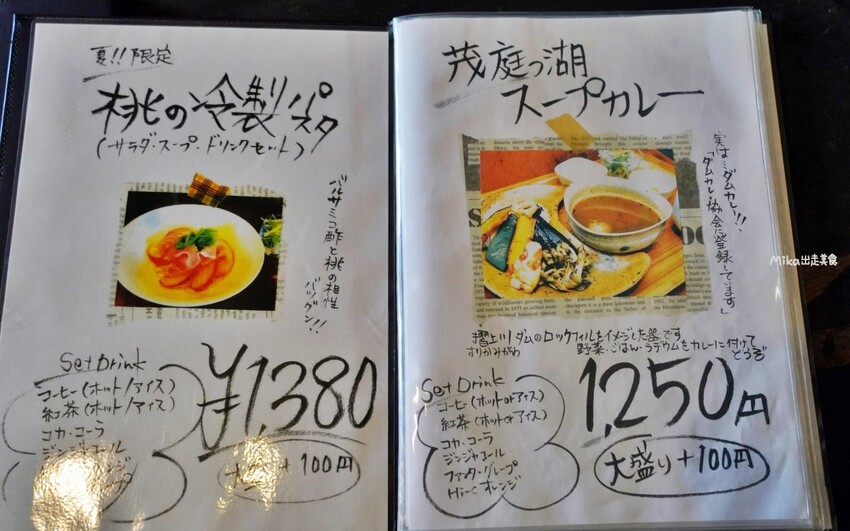 夏!!限定
桃の冷製パスタ
(サラダ・スープ・ドリンクセット)
バルサミコ酢と桃の相性
バツグン!!
Set Drink
コーヒー(ホット/アイス)
紅茶(ホット/アイス)
コカ・コーラ
ジンジャエール
¥1,380
大盛り+100円
茂庭っ湖
スープカレー
実は…ダムカレー!!
「ダムカレー協会に登録しています」
摺上川ダムのロックフィルをイメージした器です
すりかみがわ
野菜・ごはん・ラヂウムをカレーに付けて
どうぞ
Set Drink
コーヒー(ホットorアイス)
紅茶(ホットorアイス)
コカ・コーラ
ジンジャエール
ファンタ・グレープ
Hi-C オレンジ
1,250円
大盛り+100円
Mika出走美食